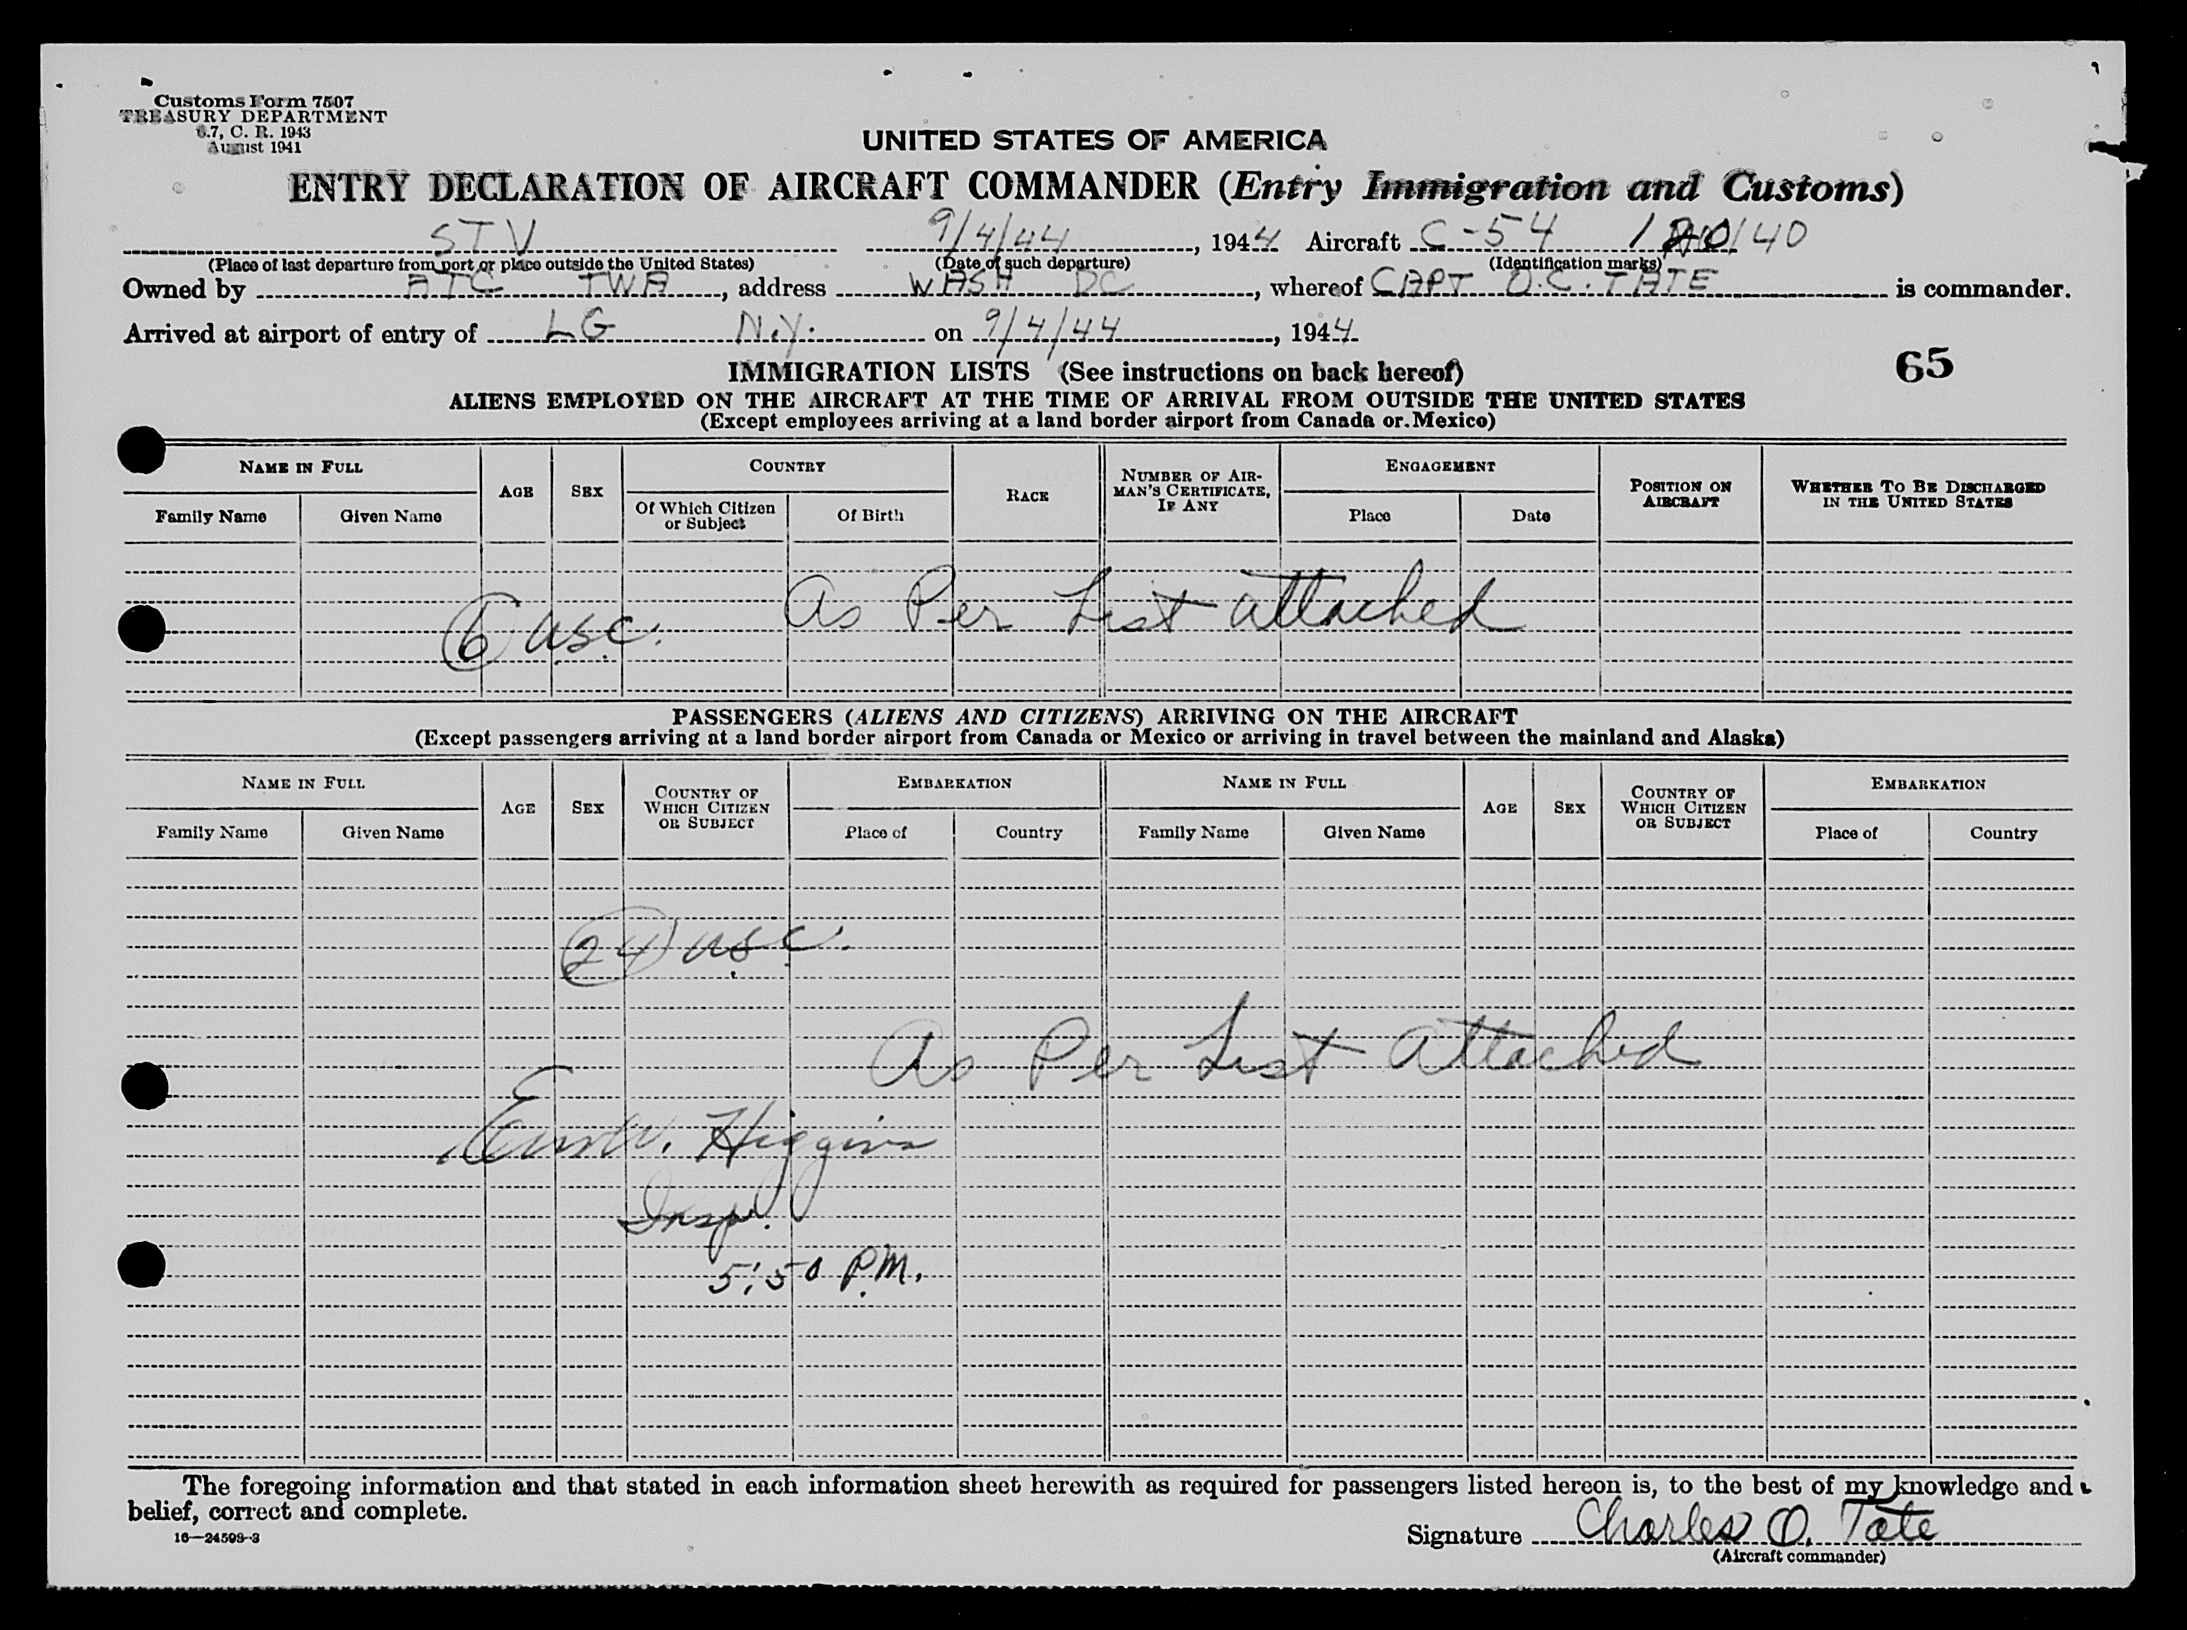 Customs Form 7507
TREASURY DEPARTMENT
6.7, C. R. 1943
August 1941
UNITED STATES OF AMERICA
ENTRY DECLARATION OF AIRCRAFT COMMANDER (Entry Immigration and Customs)
STV 9/4/44, 1944 Aircraft C-54
(Place of last departure from port or place outside the United States) (Date of such departure) (Identification marks)
Owned by ATC TWA, address WASH DC, whereof CAPT O.C. TATE is commander.
Arrived at airport of entry of LG N.Y. on 9/4/44, 1944
65
IMMIGRATION LISTS (See instructions on back hereof)
ALIENS EMPLOYED ON THE AIRCRAFT AT THE TIME OF ARRIVAL FROM OUTSIDE THE UNITED STATES
(Except employees arriving at a land border airport from Canada or Mexico)
NAME IN FULL AGE SEX COUNTRY RACE NUMBER OF AIRMAN'S CERTIFICATE, IF ANY ENGAGEMENT POSITION ON AIRCRAFT WHETHER TO BE DISCHARGED IN THE UNITED STATES
Family Name Given Name Of Which Citizen or Subject Of Birth Place Date
6 USC. As Per List attached
PASSENGERS (ALIENS AND CITIZENS) ARRIVING ON THE AIRCRAFT
(Except passengers arriving at a land border airport from Canada or Mexico or arriving in travel between the mainland and Alaska)
NAME IN FULL AGE SEX COUNTRY OF WHICH CITIZEN OR SUBJECT EMBARKATION NAME IN FULL AGE SEX COUNTRY OF WHICH CITIZEN OR SUBJECT EMBARKATION
Family Name Given Name Place of Country Family Name Given Name Place of Country
24 USC.
As Per List attached
Higgins
Insp.
5:50 P.M.
The foregoing information and that stated in each information sheet herewith as required for passengers listed hereon is, to the best of my knowledge and
belief, correct and complete.
16—24598-3
Signature Charles O. Tate
(Aircraft commander)